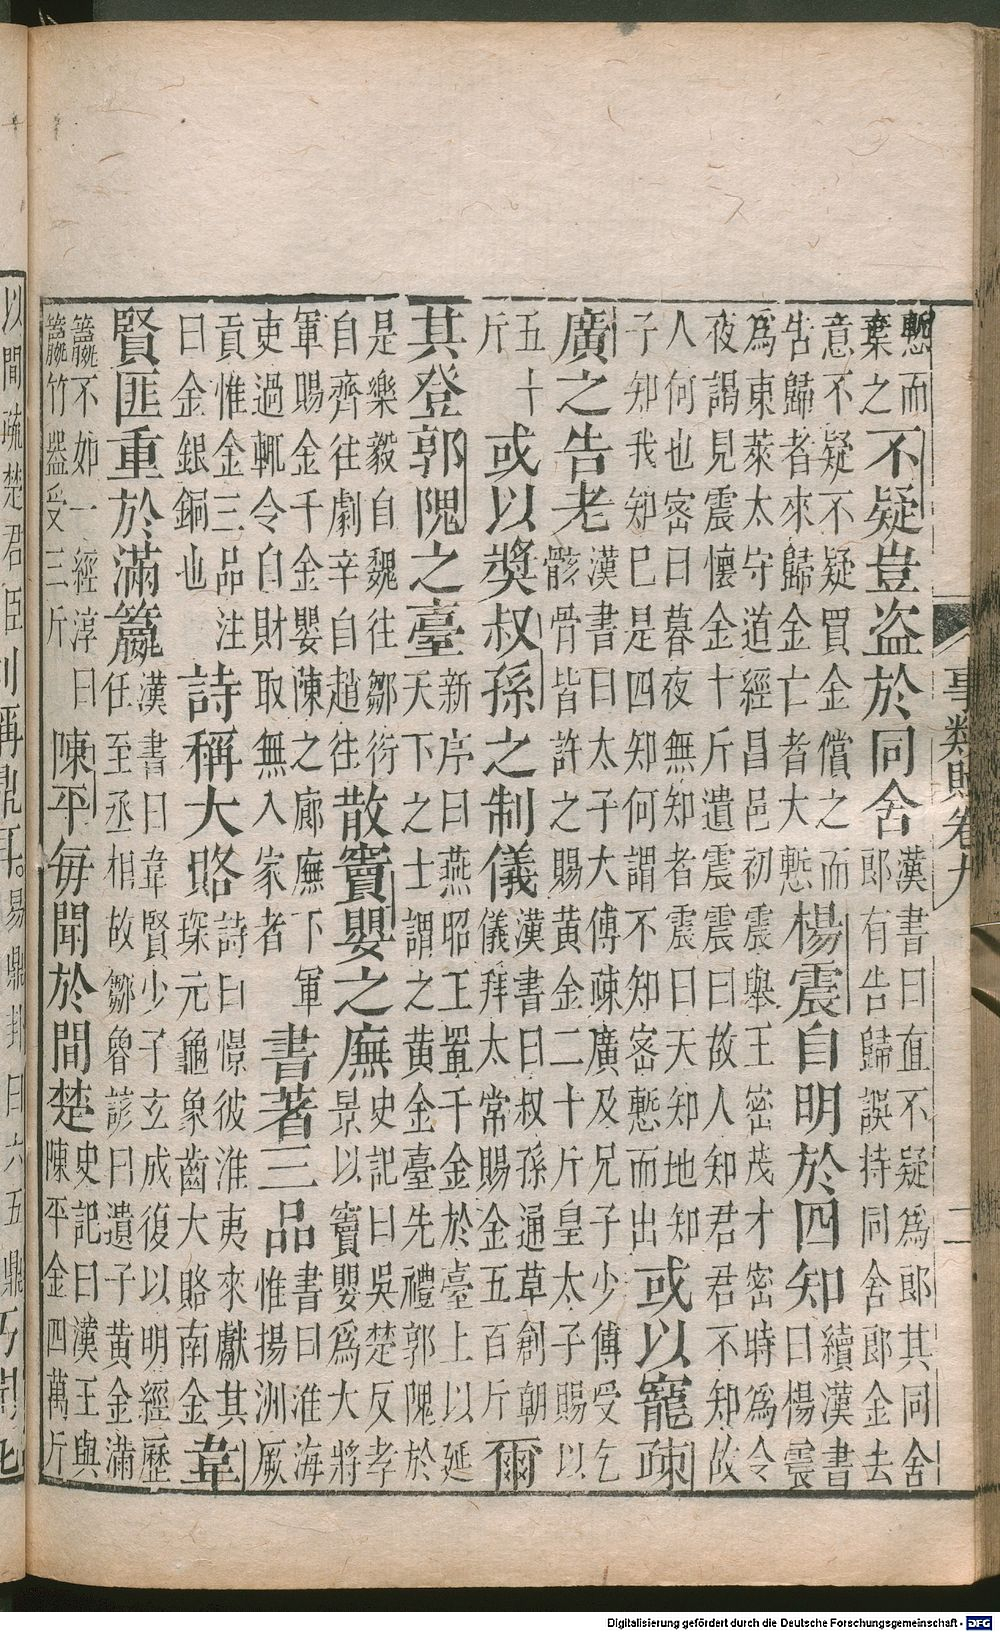 慙而
棄之
不疑豈盜於同舍
漢書曰直不疑為郎其同舍
郎有告歸誤持同舍郎金去
意不疑不疑買金償之而
告歸者來歸金亡者大慙
楊震自明於四知
續漢書
曰楊震
為東萊太守道經昌邑初震舉王密茂才密時為令
夜謁見震懷金十斤遺震震曰故人知君君不知故
人何也密曰暮夜無知者震曰天知地知
子知我知巳是四知何謂不知密慙而出
或以寵疎
廣之告老
漢書曰太子大傅疎廣及兄子少傅受乞
骸骨皆許之賜黃金二十斤皇太子賜以
五十
斤
或以獎叔孫之制儀
漢書曰叔孫通草創朝
儀拜太常賜金五百斤
爾
其登郭隗之臺
新序曰燕昭王置千金於臺上以延
天下之士謂之黃金臺先禮郭隗於
是樂毅自魏往鄒衍
自齊往劇辛自趙往
散竇嬰之廡
史記曰吳楚反孝
景以竇嬰為大將
軍賜金千金嬰陳之廊廡下軍
吏過輒令自財取無入家者
書著三品
書曰淮海
惟揚洲厥
貢惟金三品注
曰金銀銅也
詩稱大賂
詩曰憬彼淮夷來獻其
琛元龜象齒大賂南金
韋
賢匪重於滿籯
漢書曰韋賢少子玄成復以明經歷
任至丞相故鄒魯諺曰遺子黃金滿
籯不如一經淳曰
籯竹器受三斤
陳平每聞於間楚
史記曰漢王與
陳平金四萬斤
事類賦卷九
二
以間疏楚君臣
易鼎卦曰六五鼎
Digitalisierung gefördert durch die Deutsche Forschungsgemeinschaft - DFG